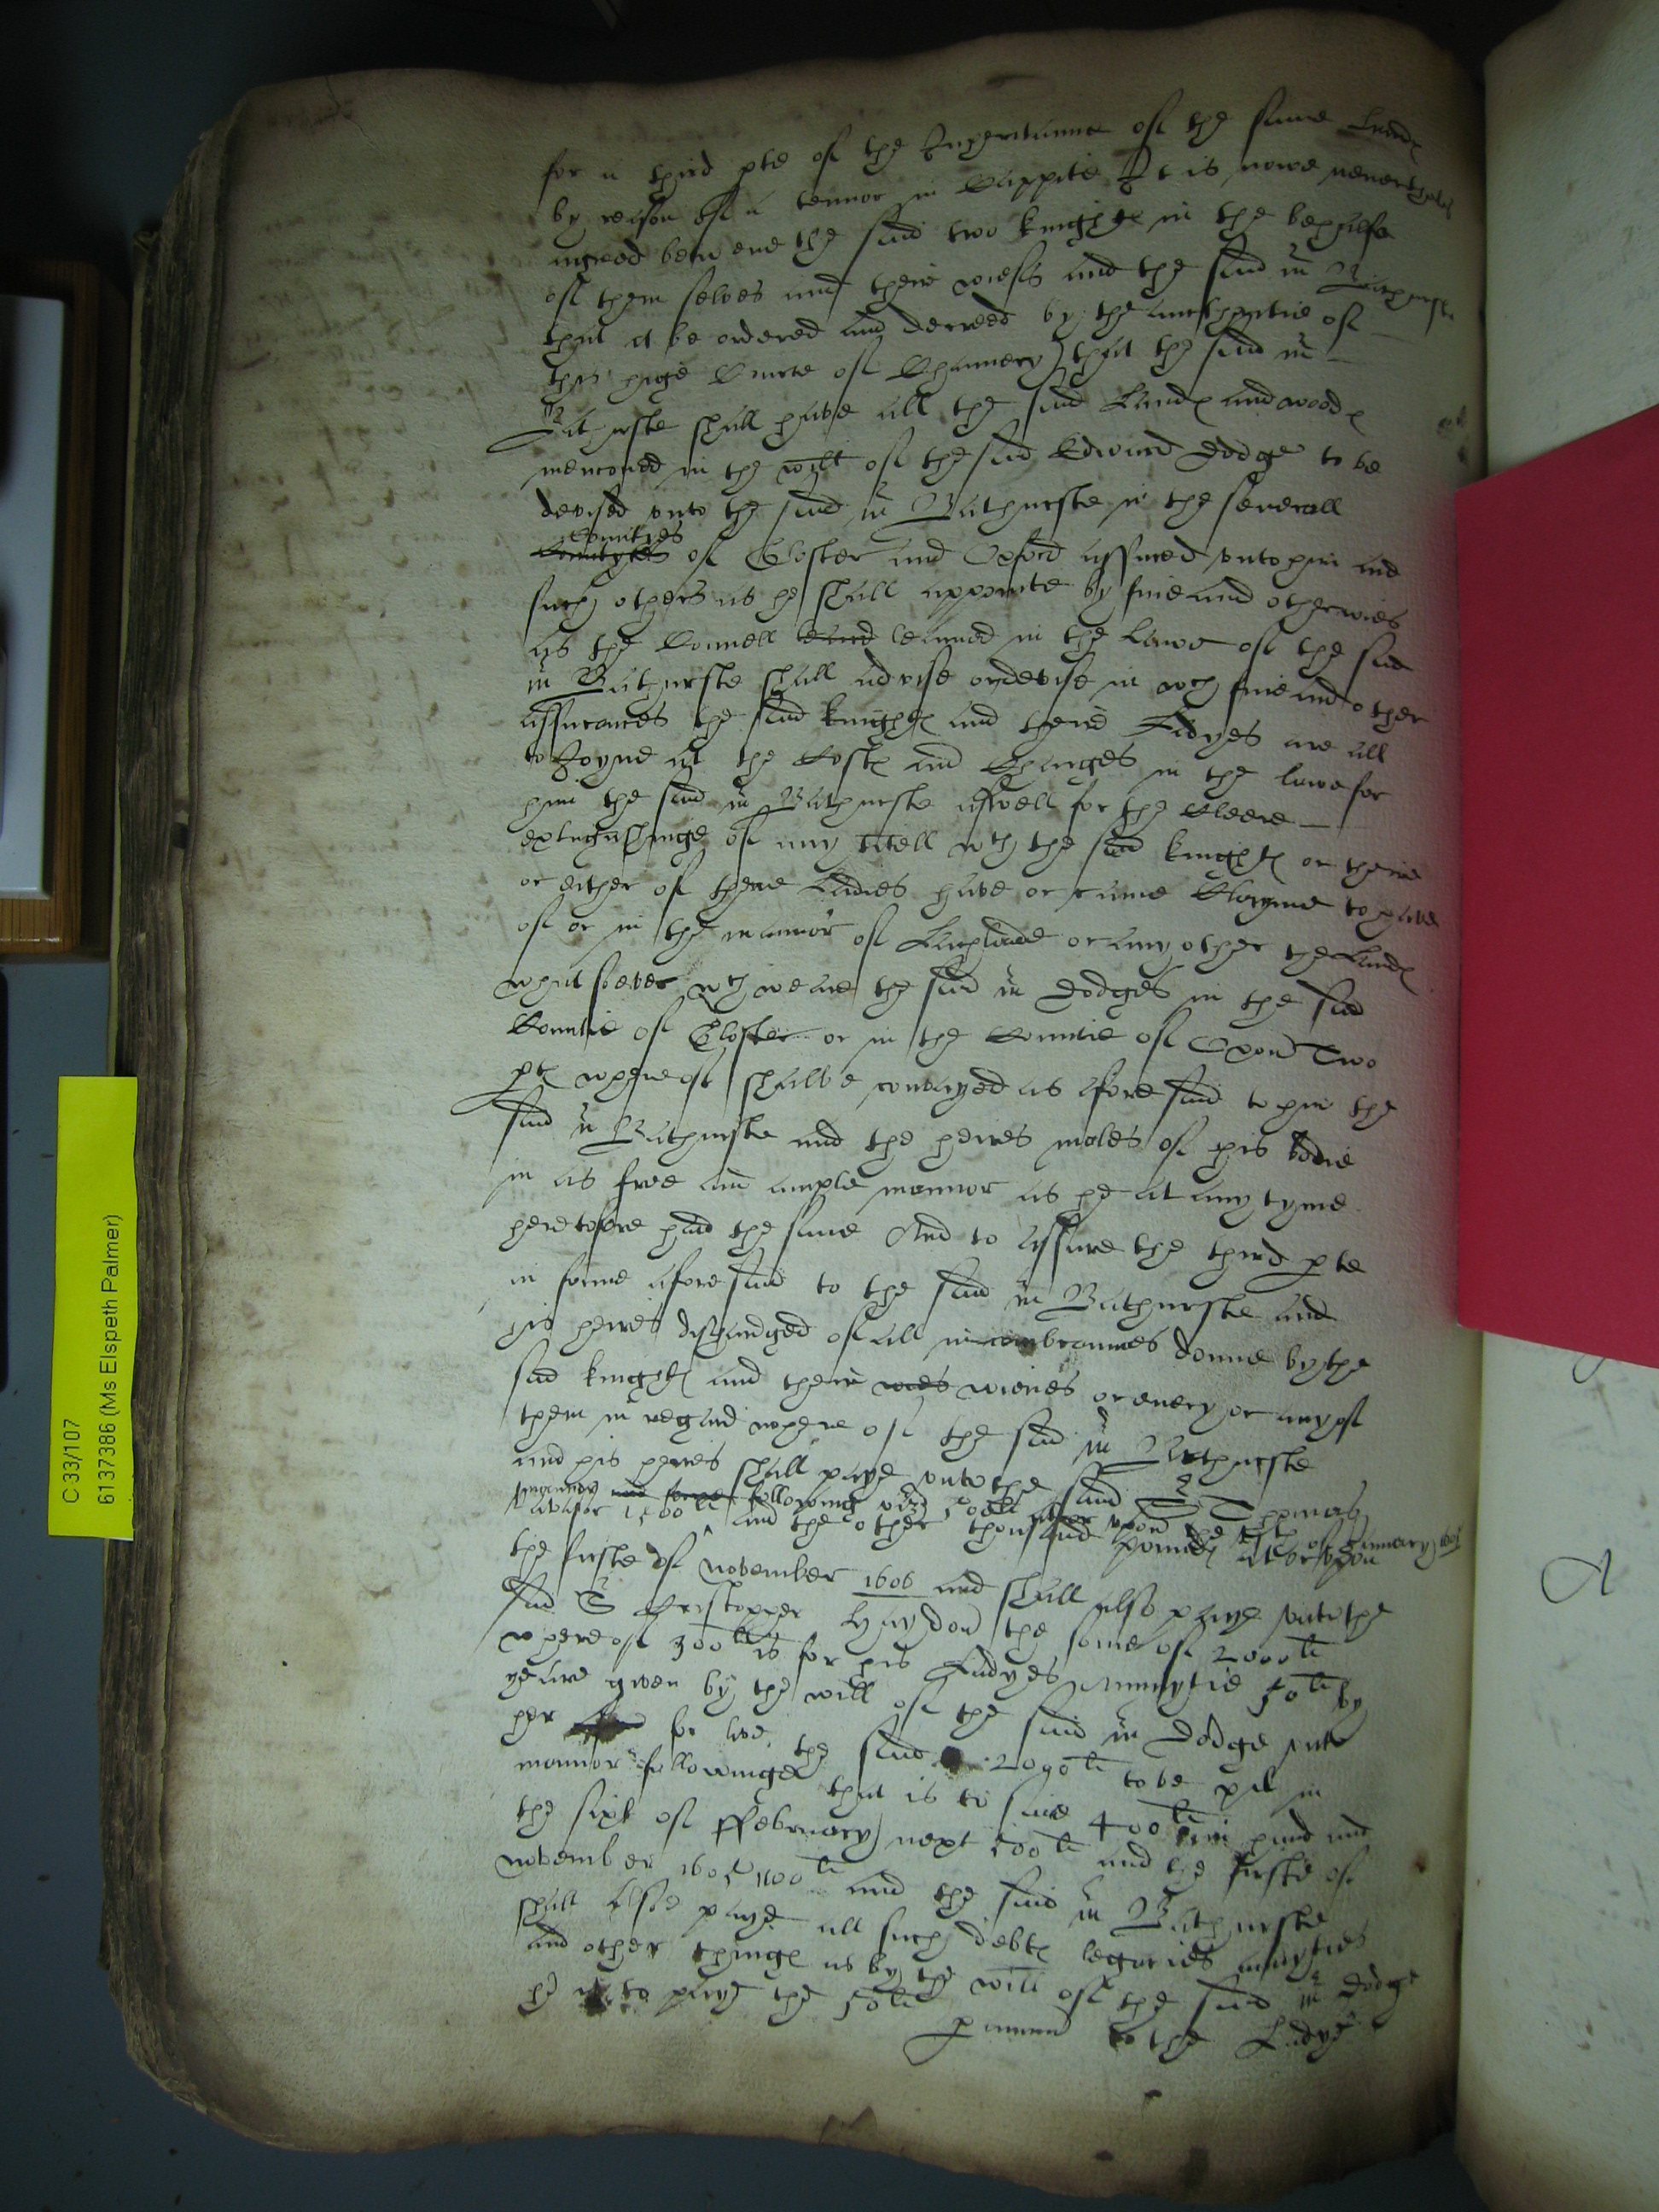 for a third pte of the Inheritaunce of the same Landes
by reason of a tennor in Cappite It is nowe nevertheles
agreed betwene the said two knightes in the behalfe
of them selves and their wiefs and the said mr Bathurste
that it be ordered and decreed by the aucthoritie of
this highe Courte of Chauncery that the said mr
Bathurste shall have all the said Landes and woodes
mencioned in the will of the said Edward Dodge to be
devised unto the said mr Bathurste in the severall
Counties
of Gloster and Oxford assured unto him and
such others as he shall appointe by fine and otherwies
as the Counsell learned in the Lawe of the said
mr Bathurste shall advise or devise in wch fine and other
assurances the said knightes and theire Ladyes are all
to Joyne at the Costes and Charges in the lawe for
him the said mr Bathurste aswell for the Cleere
extinguishinge of any titell wch the said knightes or theire
or either of theire Ladies have or came Clayme to have
of or in the mannor of or any other the Landes
whatsoever wch weare the said mr Dodges in the said
Countie of Gloster or in the Countie of Oxon Two
ptes whereof shalbe convayed as afore said to him the
said mr Bathurste and the heires males of his bodie
in as free and ample mannor as he at any tyme
heretofore had the same And to assure the third pte
in forme aforesaid to the said mr Bathurste and
his heires dischardged of all incombraunces donne by the
said knightes and their wieves or every or any of
them in regard whereof the said mr Bathurste
and his heires shall paye unto the said Sr Thomas
mannor following vizt 500li at or upon the of January 1605
1500li and the other thousand Poundes at or upon
the firste of November 1606 and shall also paye unto the
said Sr Cristopher Haydon the some of 2000li
whereof 300li is for his Ladyes Annuytie 50li by
yeare given by the will of the said mr Dodge unto
her for live, the said 2000li to be pd in
mannor followinge that is to saie 400li in hand and
the sixt of ffebruary next 500li and the firste of
November 1605 1100li and the said mr Bathurste
shall also paye all such debtes legacies annuyties
and other thinges as by the will of the said mr Dodge
he is to paye the 50li
p annum to the Ladye